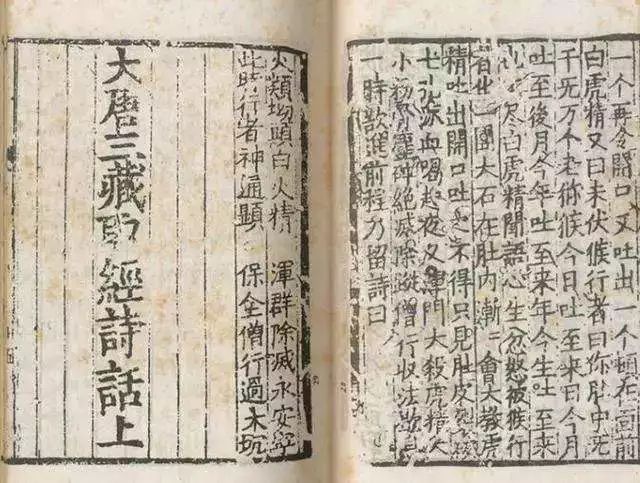 一个再令開口又吐出一个頓在面前
白虎精又曰未伏猴行者曰你肚中无
千无万个老猕猴今日吐至來日今月
吐至後月今年吐至來年今生吐至來
生也不尽白虎精聞語心生忿怒被猴行
者化一團大石在肚内漸〻會大教虎
精吐出開口吐之不得只見肚皮裂破
七孔流血喝起夜叉渾門大殺虎精大
小粉骨塵碎絶滅除蹤僧行收法歇息
一時欲進前程乃留詩曰
火類坳頭白火精 渾群除滅永安寧
此時行者神通顯 保全僧行過大坑
大唐三藏取經詩話上